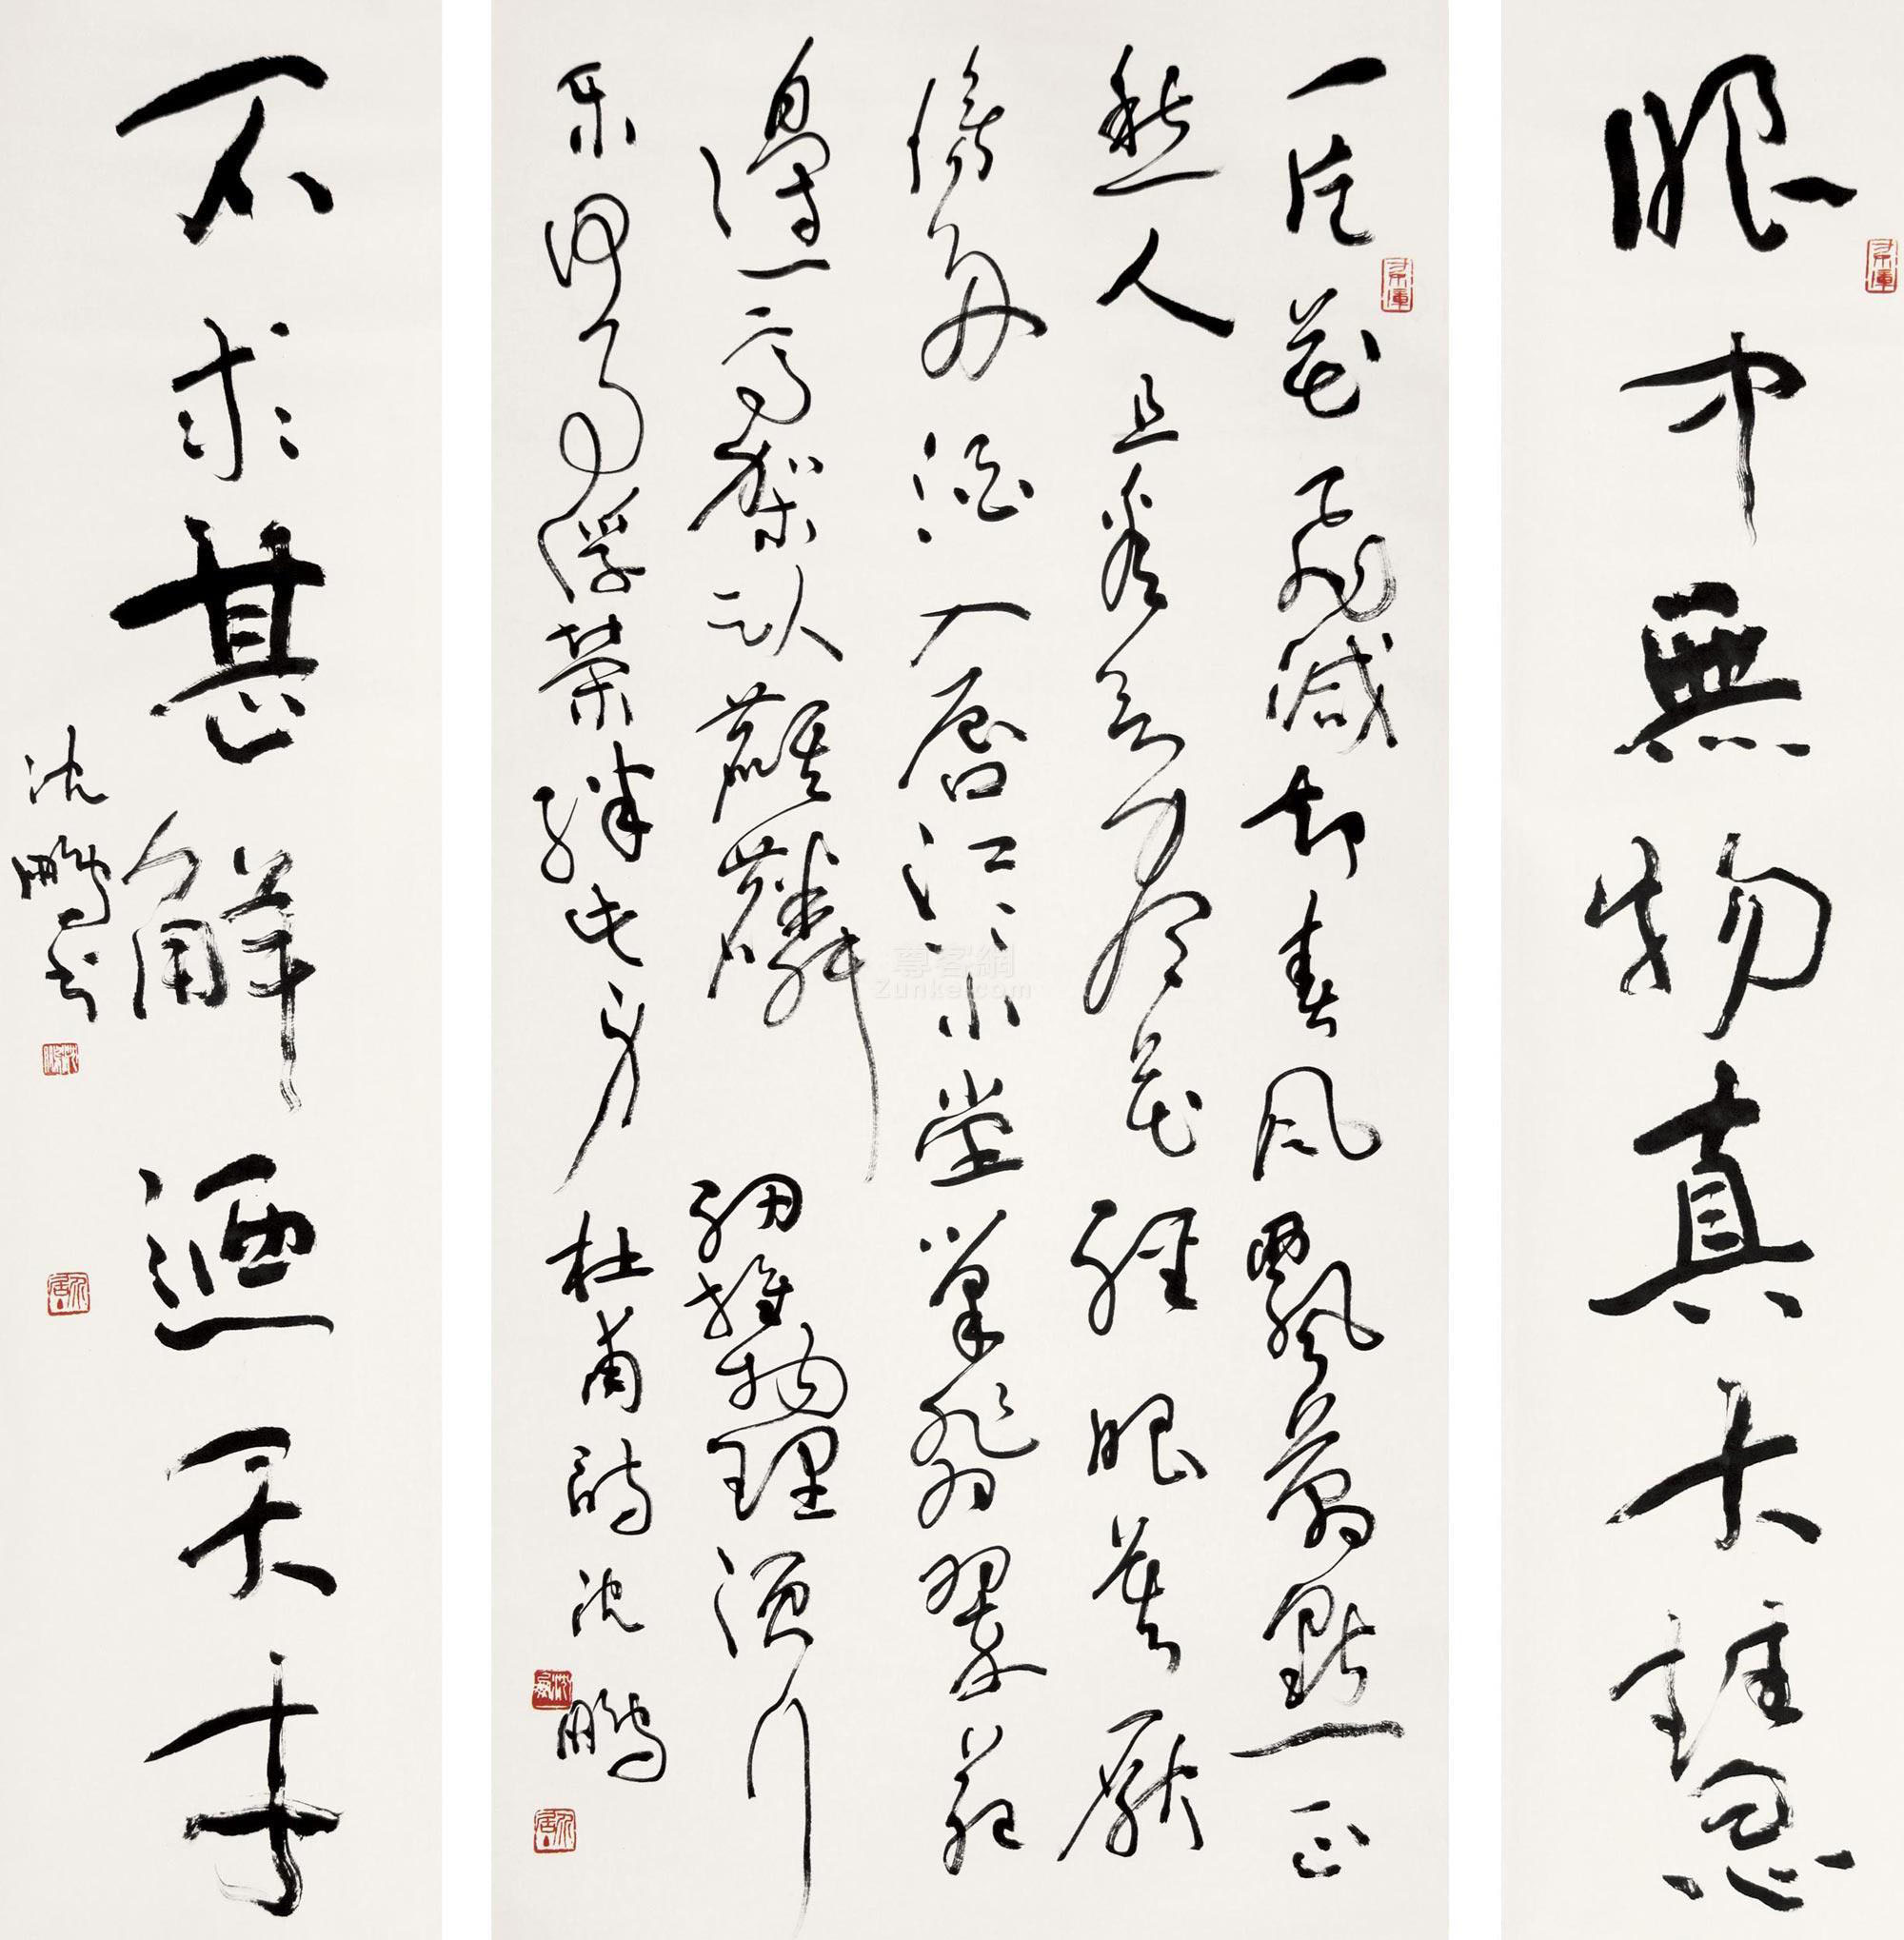 眼中無物真大慧
一片花飛減却春風飄萬點正
愁人且看欲盡花經眼莫厭
傷多酒入唇江上小堂巢翡翠苑
邊一高冢臥麒麟細推物理須行
樂何用浮榮絆此身 杜甫詩 沈鵬
不求甚解迺天
沈鵬书
尊客網
Zunke.com